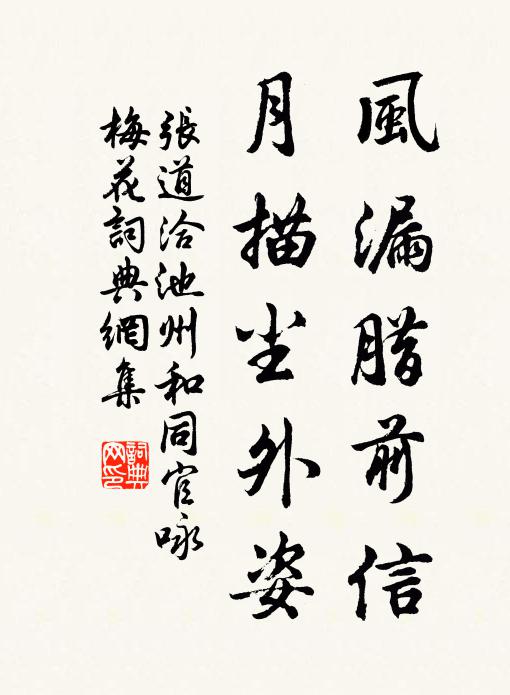 風漏腊前信
月描尘外姿
張道洽池州和同官咏
梅花詞典網集
詞典网印